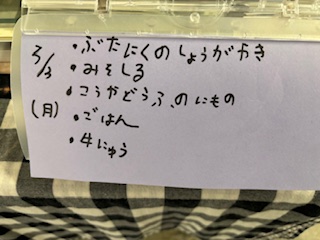 2/3
・ぶたにくのしょうがやき
・みそしる
・こうやどうふのにもの
(月)
・ごはん
・牛にゅう